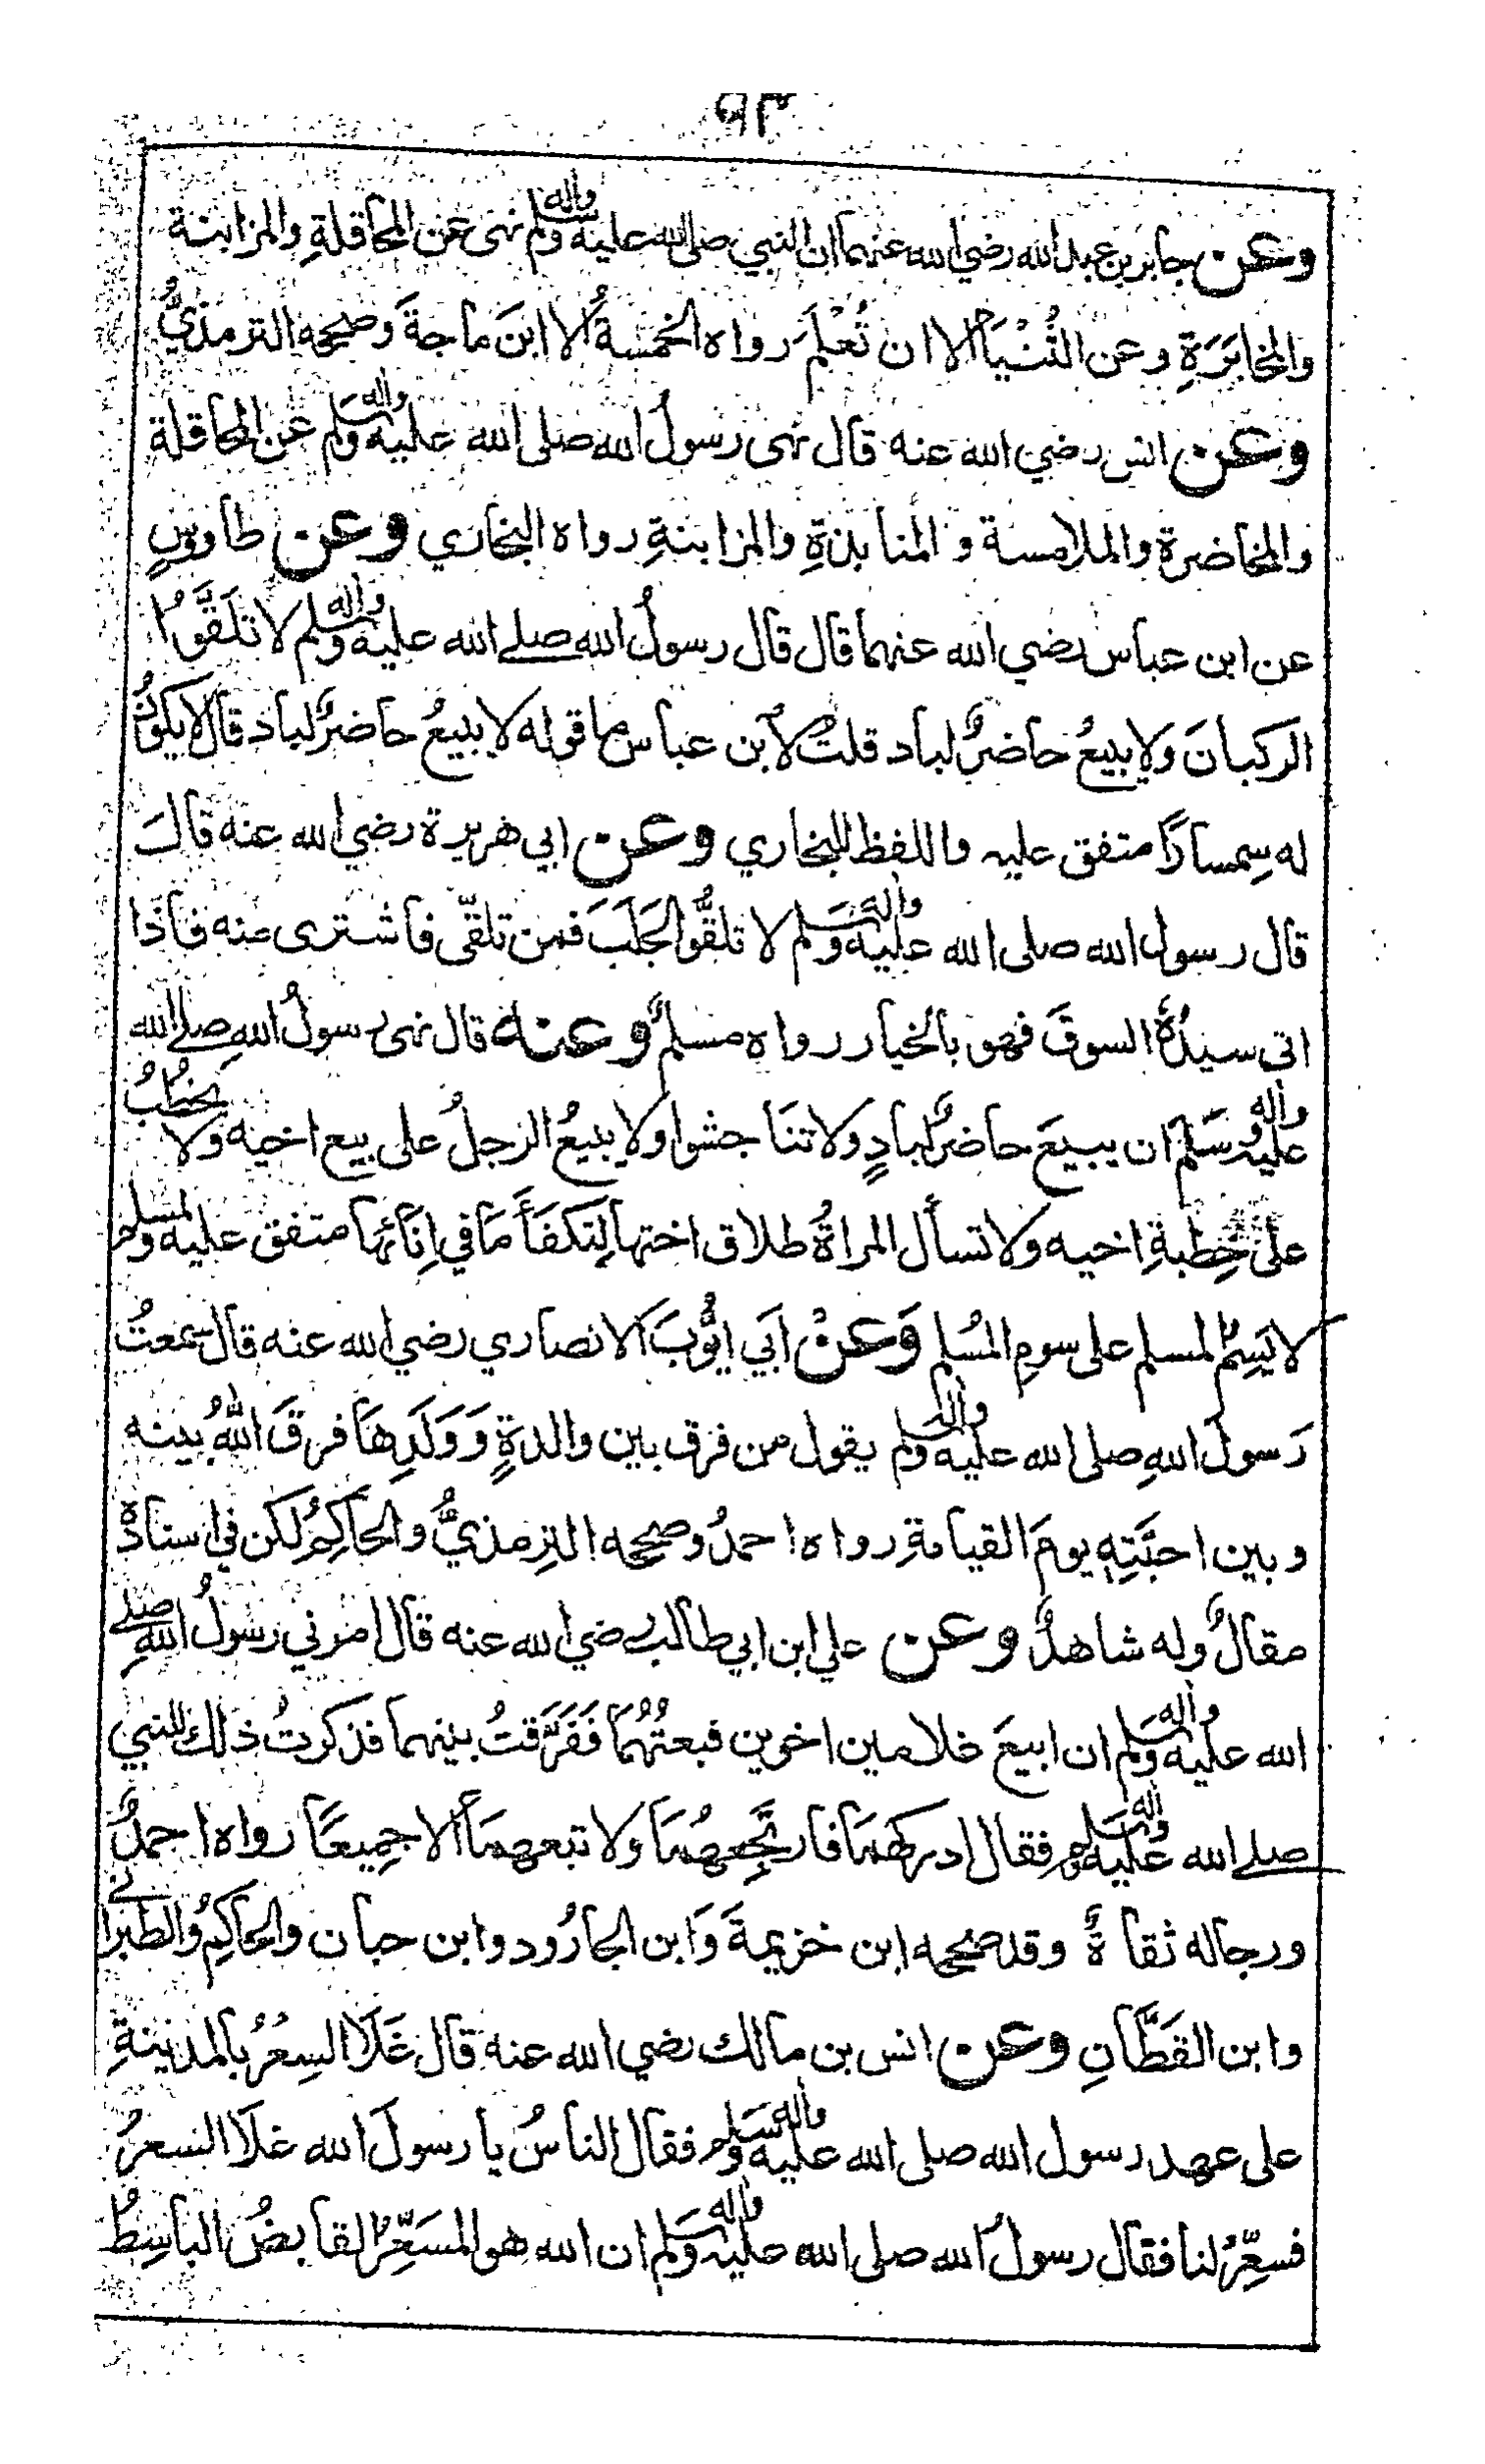 ٩٣
وعن جابر بن عبد الله رضي الله عنهما ان النبي صلى الله عليه واله وسلم نهى عن المحاقلةِ والمزابنة
والمخابَرَةِ وعن الثُّنْيَا الا ان تُعْلَمَ رواه الخمسةُ الا ابنَ ماجةَ وصححه الترمذيُّ
وعن انس رضي الله عنه قال نهى رسولُ الله صلى الله عليه واله وسلم عن المحاقلة
والمخاضرة والملامسة والمنابذةِ والمزابنةِ رواه البخاري وعن طاوسٍ
عن ابن عباس رضي الله عنهما قال قال رسولُ الله صلے الله عليه واله وسلم لا تلَقَّوُا
الركبانَ ولا يبيعُ حاضرٌ لباد قلتُ لابن عباس ما قوله لا يبيعُ حاضرٌ لباد قال لا يكونُ
له سِمسارًا متفق عليه واللفظ للبخاري وعن ابي هريرة رضي الله عنه قالَ
قال رسول الله صلى الله عليه واله وسلم لا تلقَّوُا الجَلَبَ فمن تلقّى فاشترى منه فاذا
اتى سيدُهُ السوقَ فهو بالخيار رواه مسلمٌ وعنه قال نهى رسولُ اللهِ صلے الله
عليه واله وسَلَّمَ ان يبيعَ حاضرٌ لبادٍ ولا تنَاجشوا ولا يبيعُ الرجلُ على بيع اخيه ولا يخطُبُ
على خِطبةِ اخيه ولا تسأل المراةُ طلاق اختها لِتَكفَأَ مَا في اِنَائها متفق عليه ولمسلم
لا يَسِمِ المسلم على سومِ المسُلم وَعنْ اَبي ايُّوبَ الانصاري رضي الله عنه قال سمعتُ
رَسولَ اللهِ صلى الله عليه واله وسلم يقول من فرق بين والدةٍ وَوَلَدِهَا فرقَ اللهُ بينه
وبين احبَّتِهٖ يومَ القيامةِ رواه احمدُ وصححه الترمذيُّ والحاكِمُ لكن في اسنادهٖ
مقالٌ وله شاهدٌ وعن علي ابن ابي طالب رضي الله عنه قال امرني رسولُ اللهِ صلے
الله عليه واله وسلم ان ابيعَ غلامين اخوين فبعتُهُمَا فَفَرَّقتُ بينهما فذكرتُ ذلك للنبي
صلے الله عليه واله وسلم فقال ادركهمَا فارتَجِعهُمَا ولا تبعهمَا الا جمِيعًا رواه احمدُ
ورجاله ثقاةٌ وقد صححه ابن خزيمةَ وَابن الجارُود وابن حبان والحاكِمُ والطبراني
وابن القَطَّانِ وعن انس بن مالك رضي الله عنه قال غَلَا السِعْرُ بالمدينةِ
على عهد رسول الله صلى الله عليه واله وسَلم فقال الناسُ يا رسولَ الله غلَا السعرُ
فسعِّرْ لنا فقال رسولُ الله صلى الله عليه واله وسلم ان الله هو المسَعِّرُ القابضُ الباسِطُ